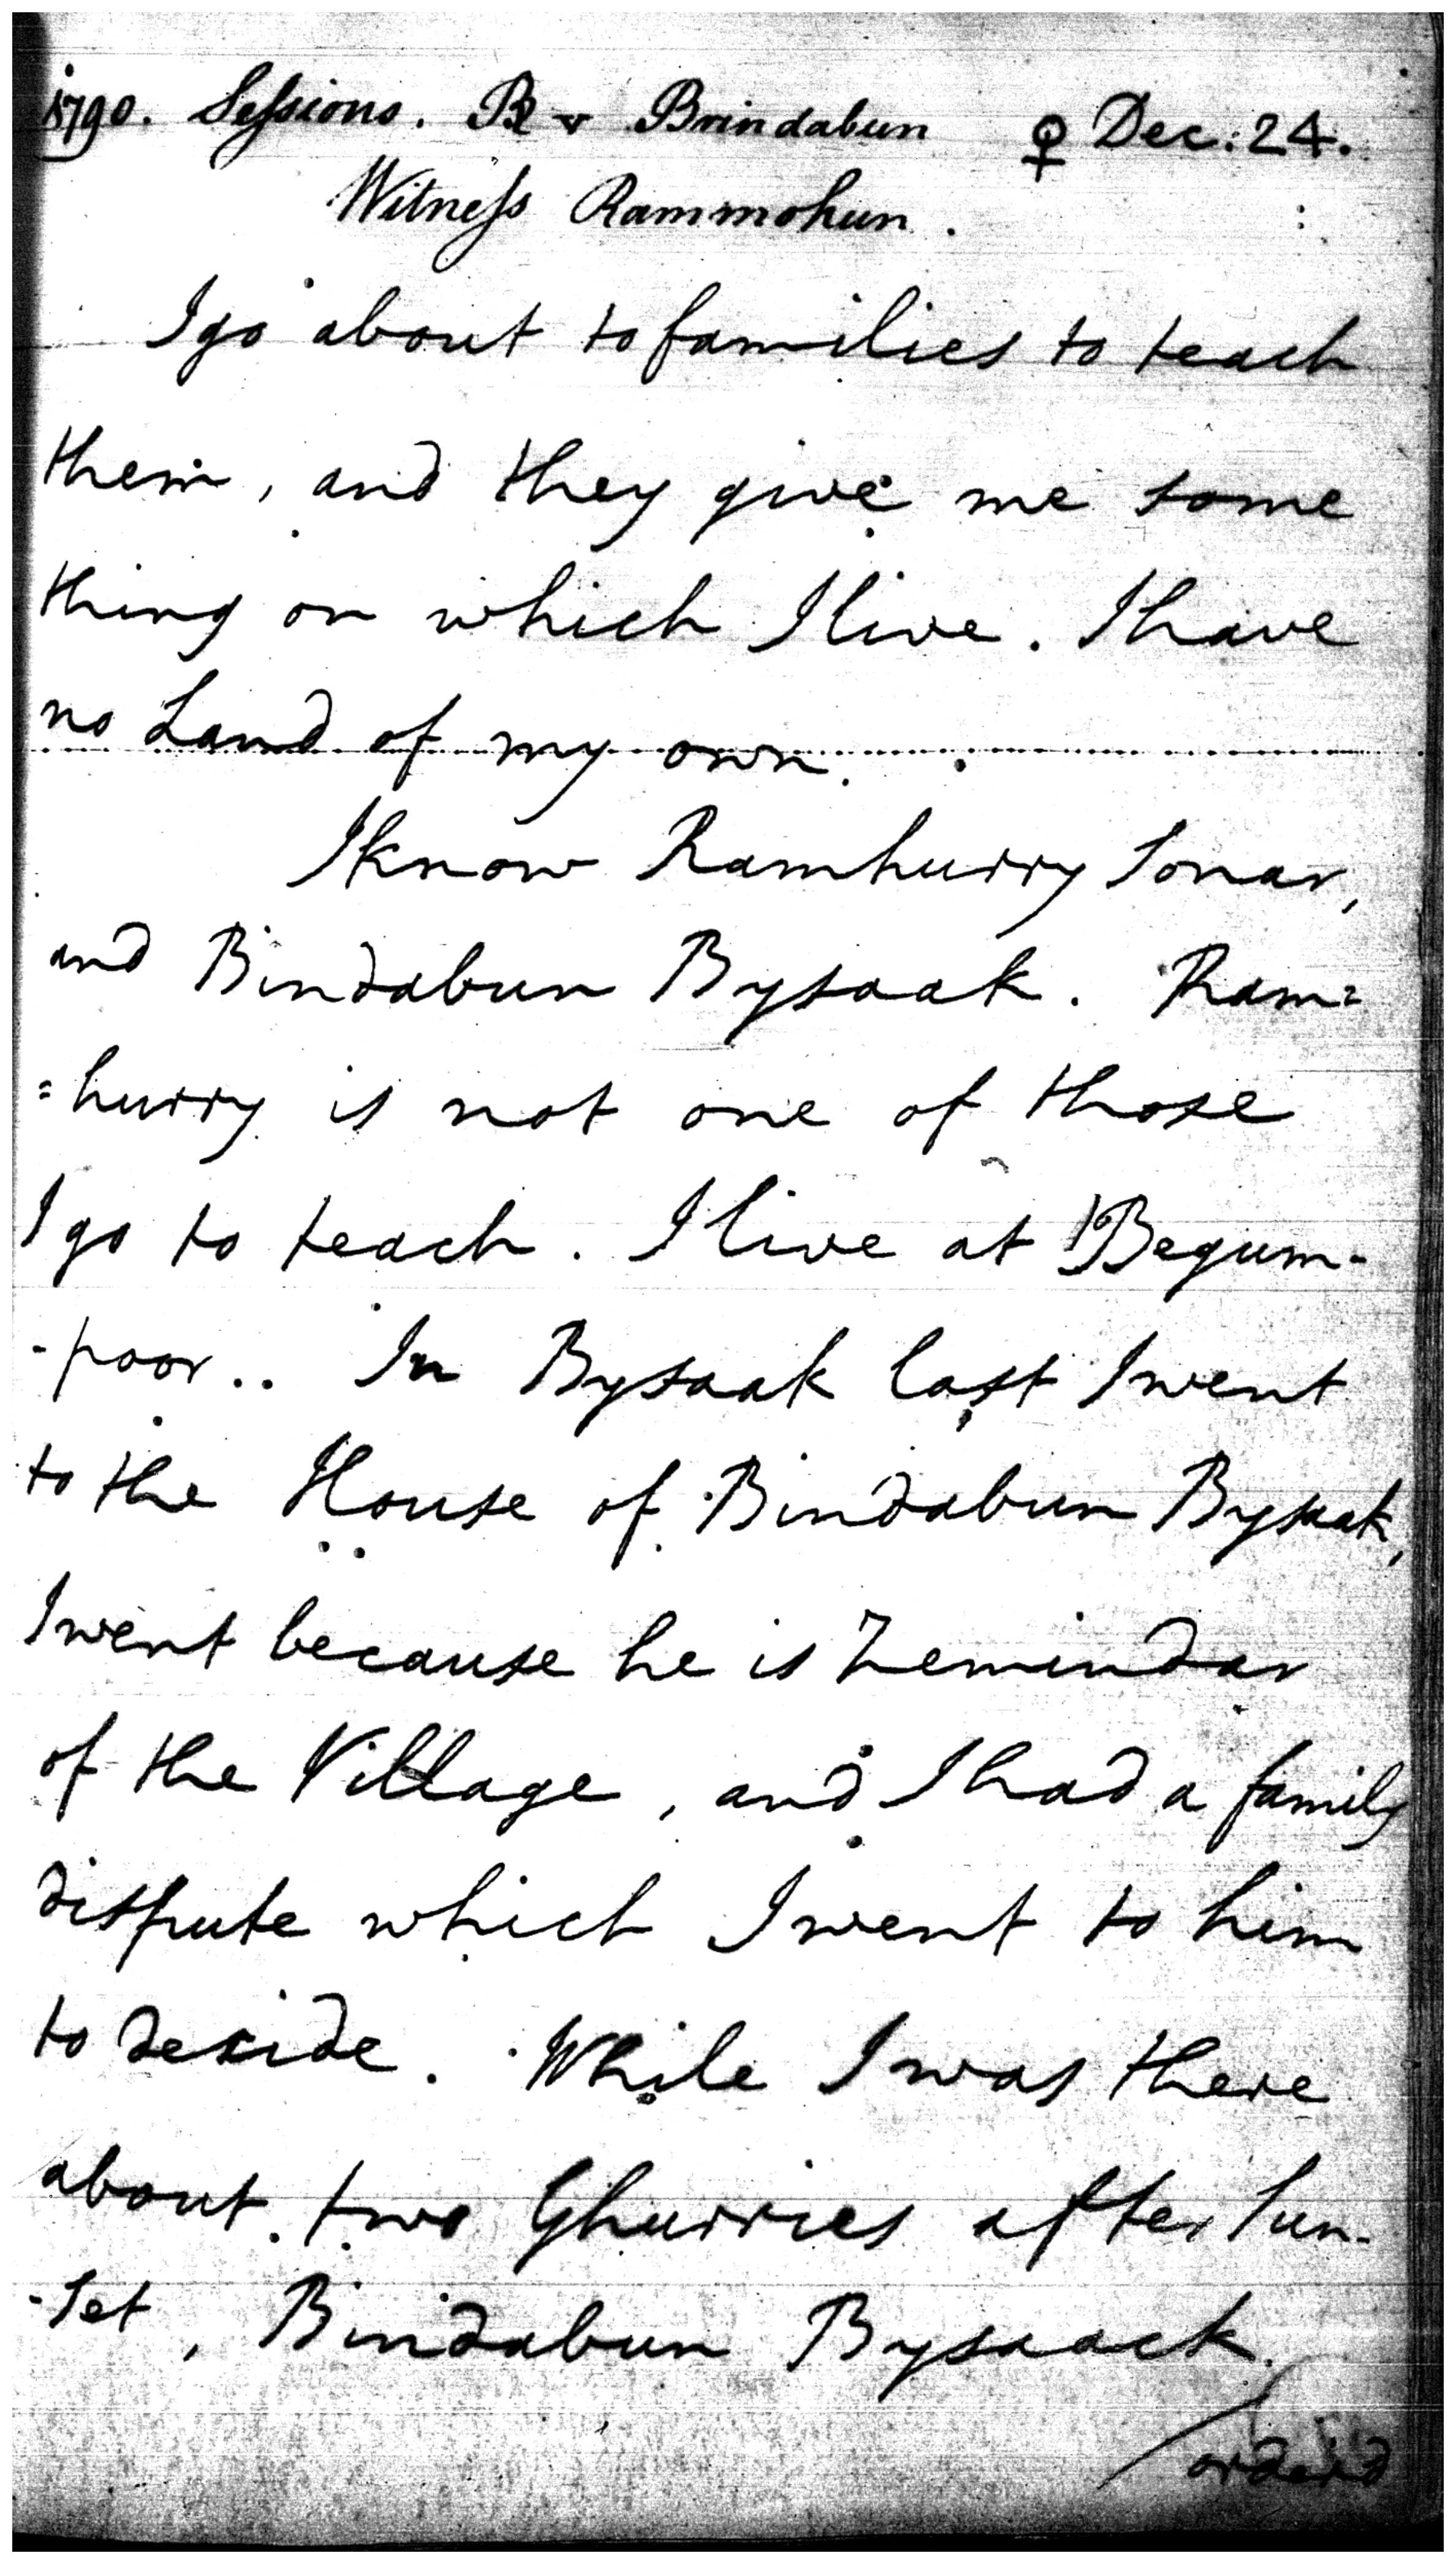 1790. Sessions. R v Brindabun ♀ Dec: 24.
Witness Rammohun.
I go about to families to teach
them, and they give me some
thing on which I live. I have
no Land of my own.
I know Ramhurry Sonar,
and Bindabun Bysaak. Ram=
=hurry is not one of those
I go to teach. I live at Begum-
-poor.. In Bysaak last I went
to the House of Bindabun Bysaak,
I went because he is Zemindar
of the Village, and I had a family
dispute which I went to him
to decide. While I was there
about two Ghurries after Sun-
-set, Bindabun Bysaack
orderd